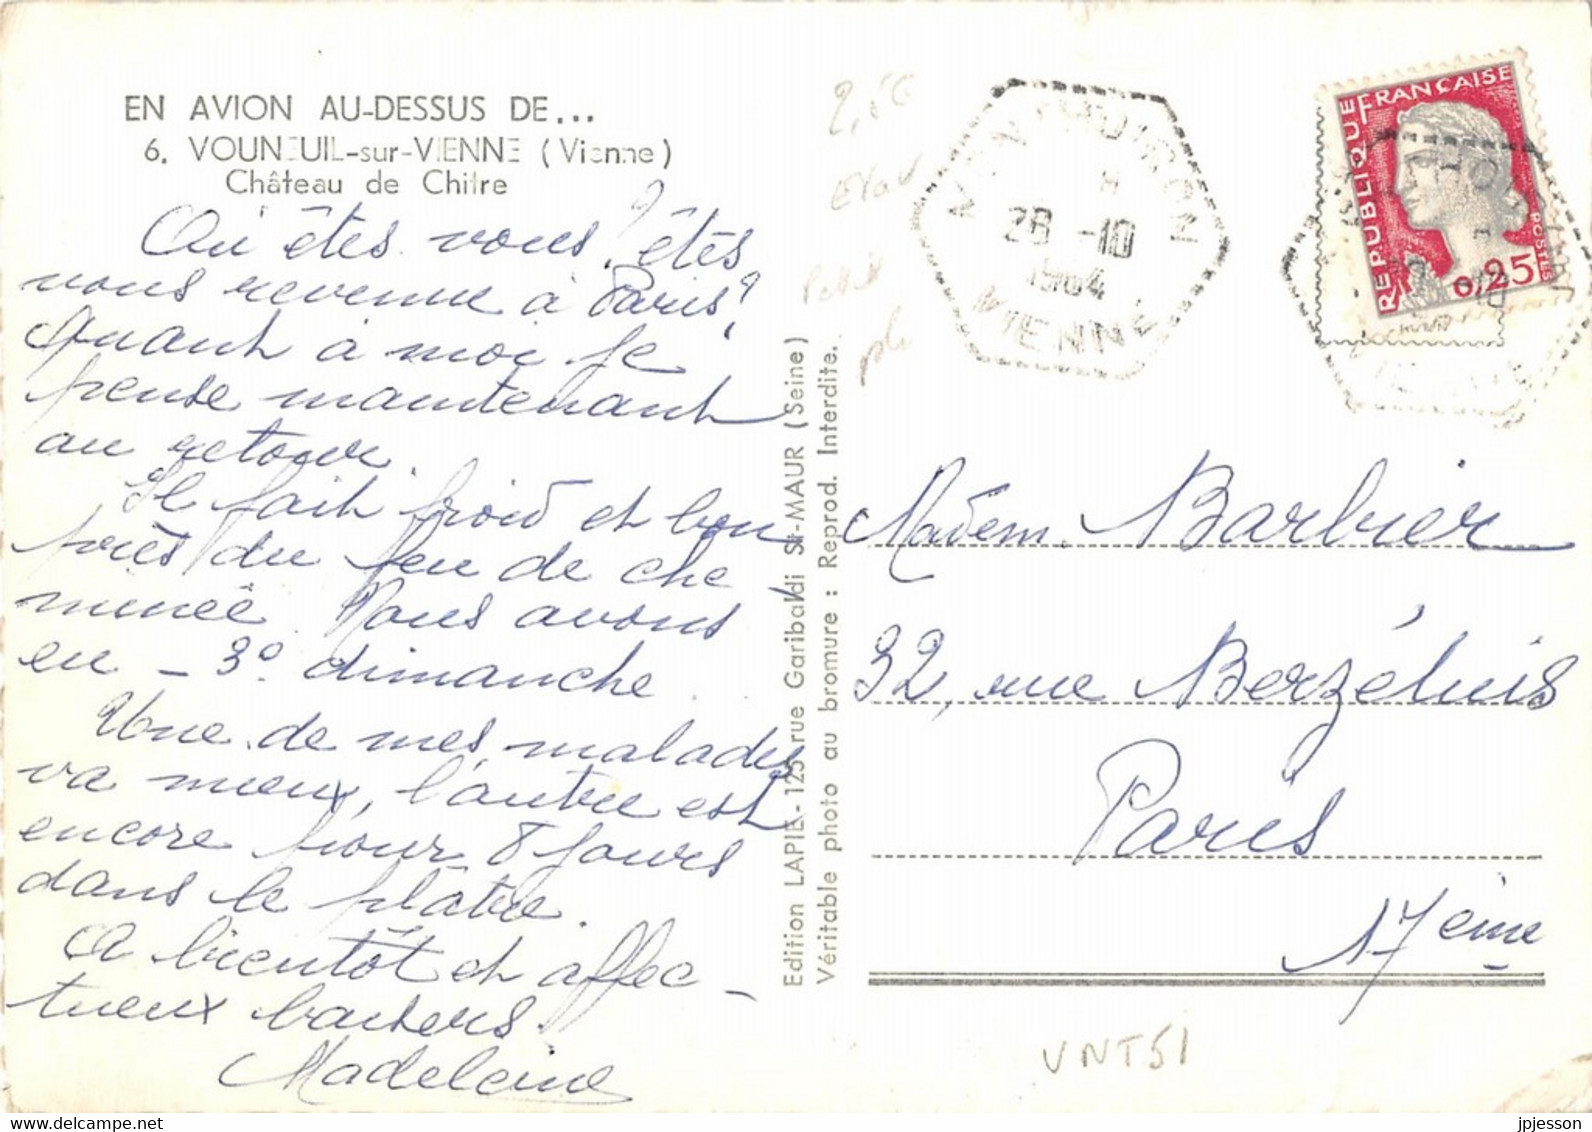 EN AVION AU-DESSUS DE...
6. VOUNEUIL-sur-VIENNE (Vienne)
Château de Chitre
Où êtes vous? êtes
vous revenue à Paris?
Quant à moi je
pense maintenant
au retour.
Il fait froid et bon
près du feu de che
minée. Nous avons
eu - 3° dimanche.
Une de mes malades
va mieux, l'autre est
encore pour 8 jours
dans le plâtre.
A bientôt et affec-
tueux baisers.
Madeleine
Edition LAPIE - 125 rue Garibaldi St-MAUR (Seine)
Véritable photo au bromure : Reprod. Interdite.
28 -10
1964
VIENNE
REPUBLIQUE FRANÇAISE
POSTES
0,25
Madem. Barbier
32, rue Berzélius
Paris
17ème
VNT51
jpjesson